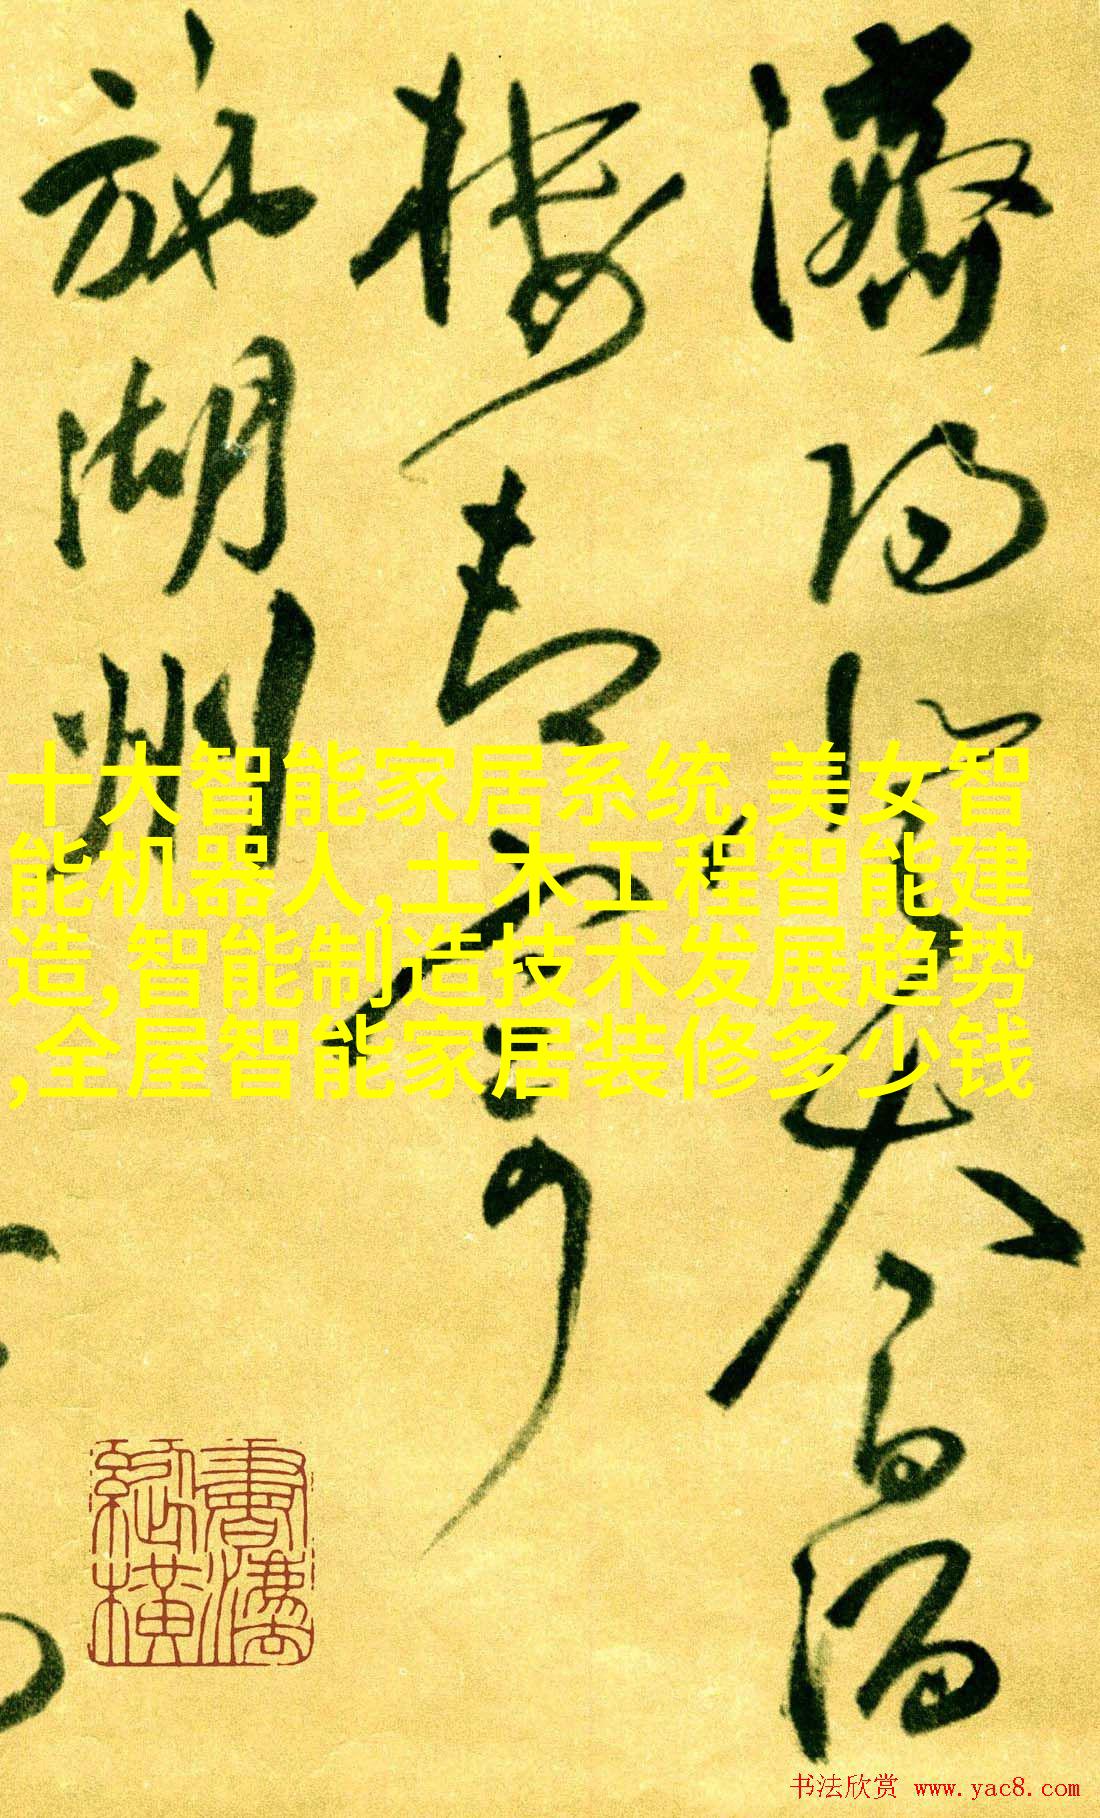 濟太白酒
樓
湖州
十大智能家居系统,美女智
能机器人,土木工程智能建
造,智能制造技术发展趋势
,全屋智能家居装修多少钱
书法欣赏 www.yac8.com